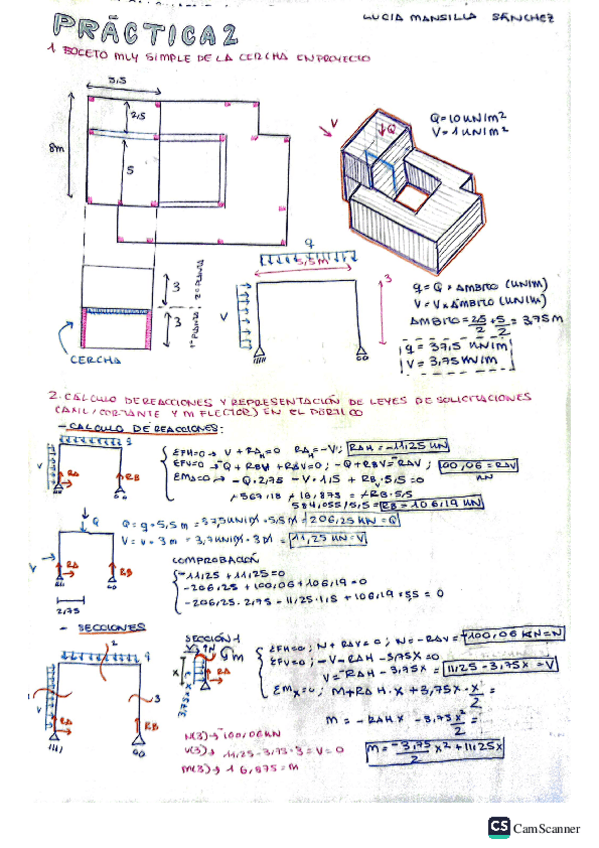 PRÁCTICA 2
LUCIA MANSILLA SÁNCHEZ
1 BOCETO MUY SIMPLE DE LA CERCHA EN PROYECTO
5,5
2,5
8m
5
V
Q
Q=10 KN/m²
V=1 KN/m²
3
2ª PLANTA
3
1ª PLANTA
CERCHA
q
5,5 m
V
3
q = Q × AMBITO (KN/m)
V = V × AMBITO (KN/m)
AMBITO = 2,5/2 + 5/2 = 3,75 m
q = 37,5 KN/m
V = 3,75 KN/m
2. CALCULO DE REACCIONES Y REPRESENTACIÓN DE LEYES DE SOLICITACIONES
(AXIL/CORTANTE Y M FLECTOR) EN EL PÓRTICO
- CALCULO DE REACCIONES:
q
V
RA
RB
ΣFH=0 → V + RAH=0 RAH=-V; RAH = -11,25 KN
ΣFV=0 → -Q + RBV + RAV=0; -Q+RBV=-RAV; 100,06 = RAV KN
ΣMA=0 → -Q·2,75 - V·1,5 + RBV·5,5=0
-567,18 + 16,875 = -RB·5,5
584,055/5,5 = RB = 106,19 KN
Q
V
RA
RB
2,75
Q = q·5,5m = 37,5 KN/m · 5,5m = 206,25 KN = Q
V = v·3m = 3,7 KN/m · 3m = 11,25 KN = V
COMPROBACIÓN
-11,25 + 11,25 = 0
-206,25 + 100,06 + 106,19 = 0
-206,25·2,75 - 11,25·1,5 + 106,19·5,5 = 0
- SECCIONES
2
q
1
V
RA
3
RB
SECCIÓN 1
N
m
x
3,75 × x
RA
ΣFH=0; N + RAV = 0; N = -RAV = -100,06 KN = N
ΣFV=0; -V - RAH - 3,75X = 0
V = -RAH - 3,75X = 11,25 - 3,75X = V
ΣMx=0; M + RAH·X + 3,75X·X/2 =
M = -RAHX - 3,75X²/2 =
M = -3,75/2 X² + 11,25X
N(3) → -100,06 KN
V(3) → 11,25 - 3,75·3 = V = 0
M(3) → 16,875 = M
CS CamScanner